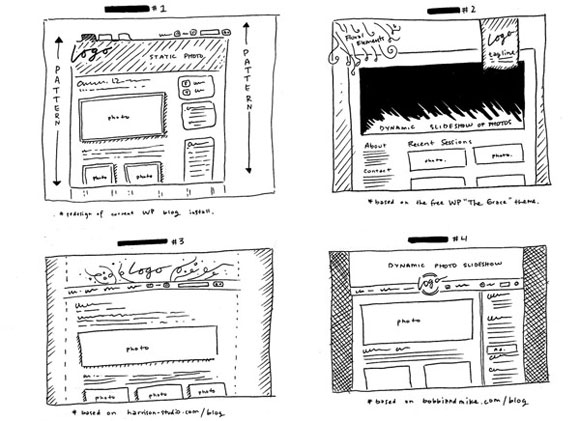 #1
logo
STATIC PHOTO
PATTERN
PATTERN
photo
photo
photo
* redesign of current WP blog install.
#2
Floral
Elements
logo
tagline
DYNAMIC SLIDESHOW OF PHOTOS
About
Recent Sessions
photo.
photo.
Contact
* based on the free WP "The Grace" theme.
#3
logo
photo
photo
photo
photo
* based on harrison-studio.com/blog
#4
DYNAMIC PHOTO SLIDESHOW
logo
photo
* based on bobbiandmike.com/blog